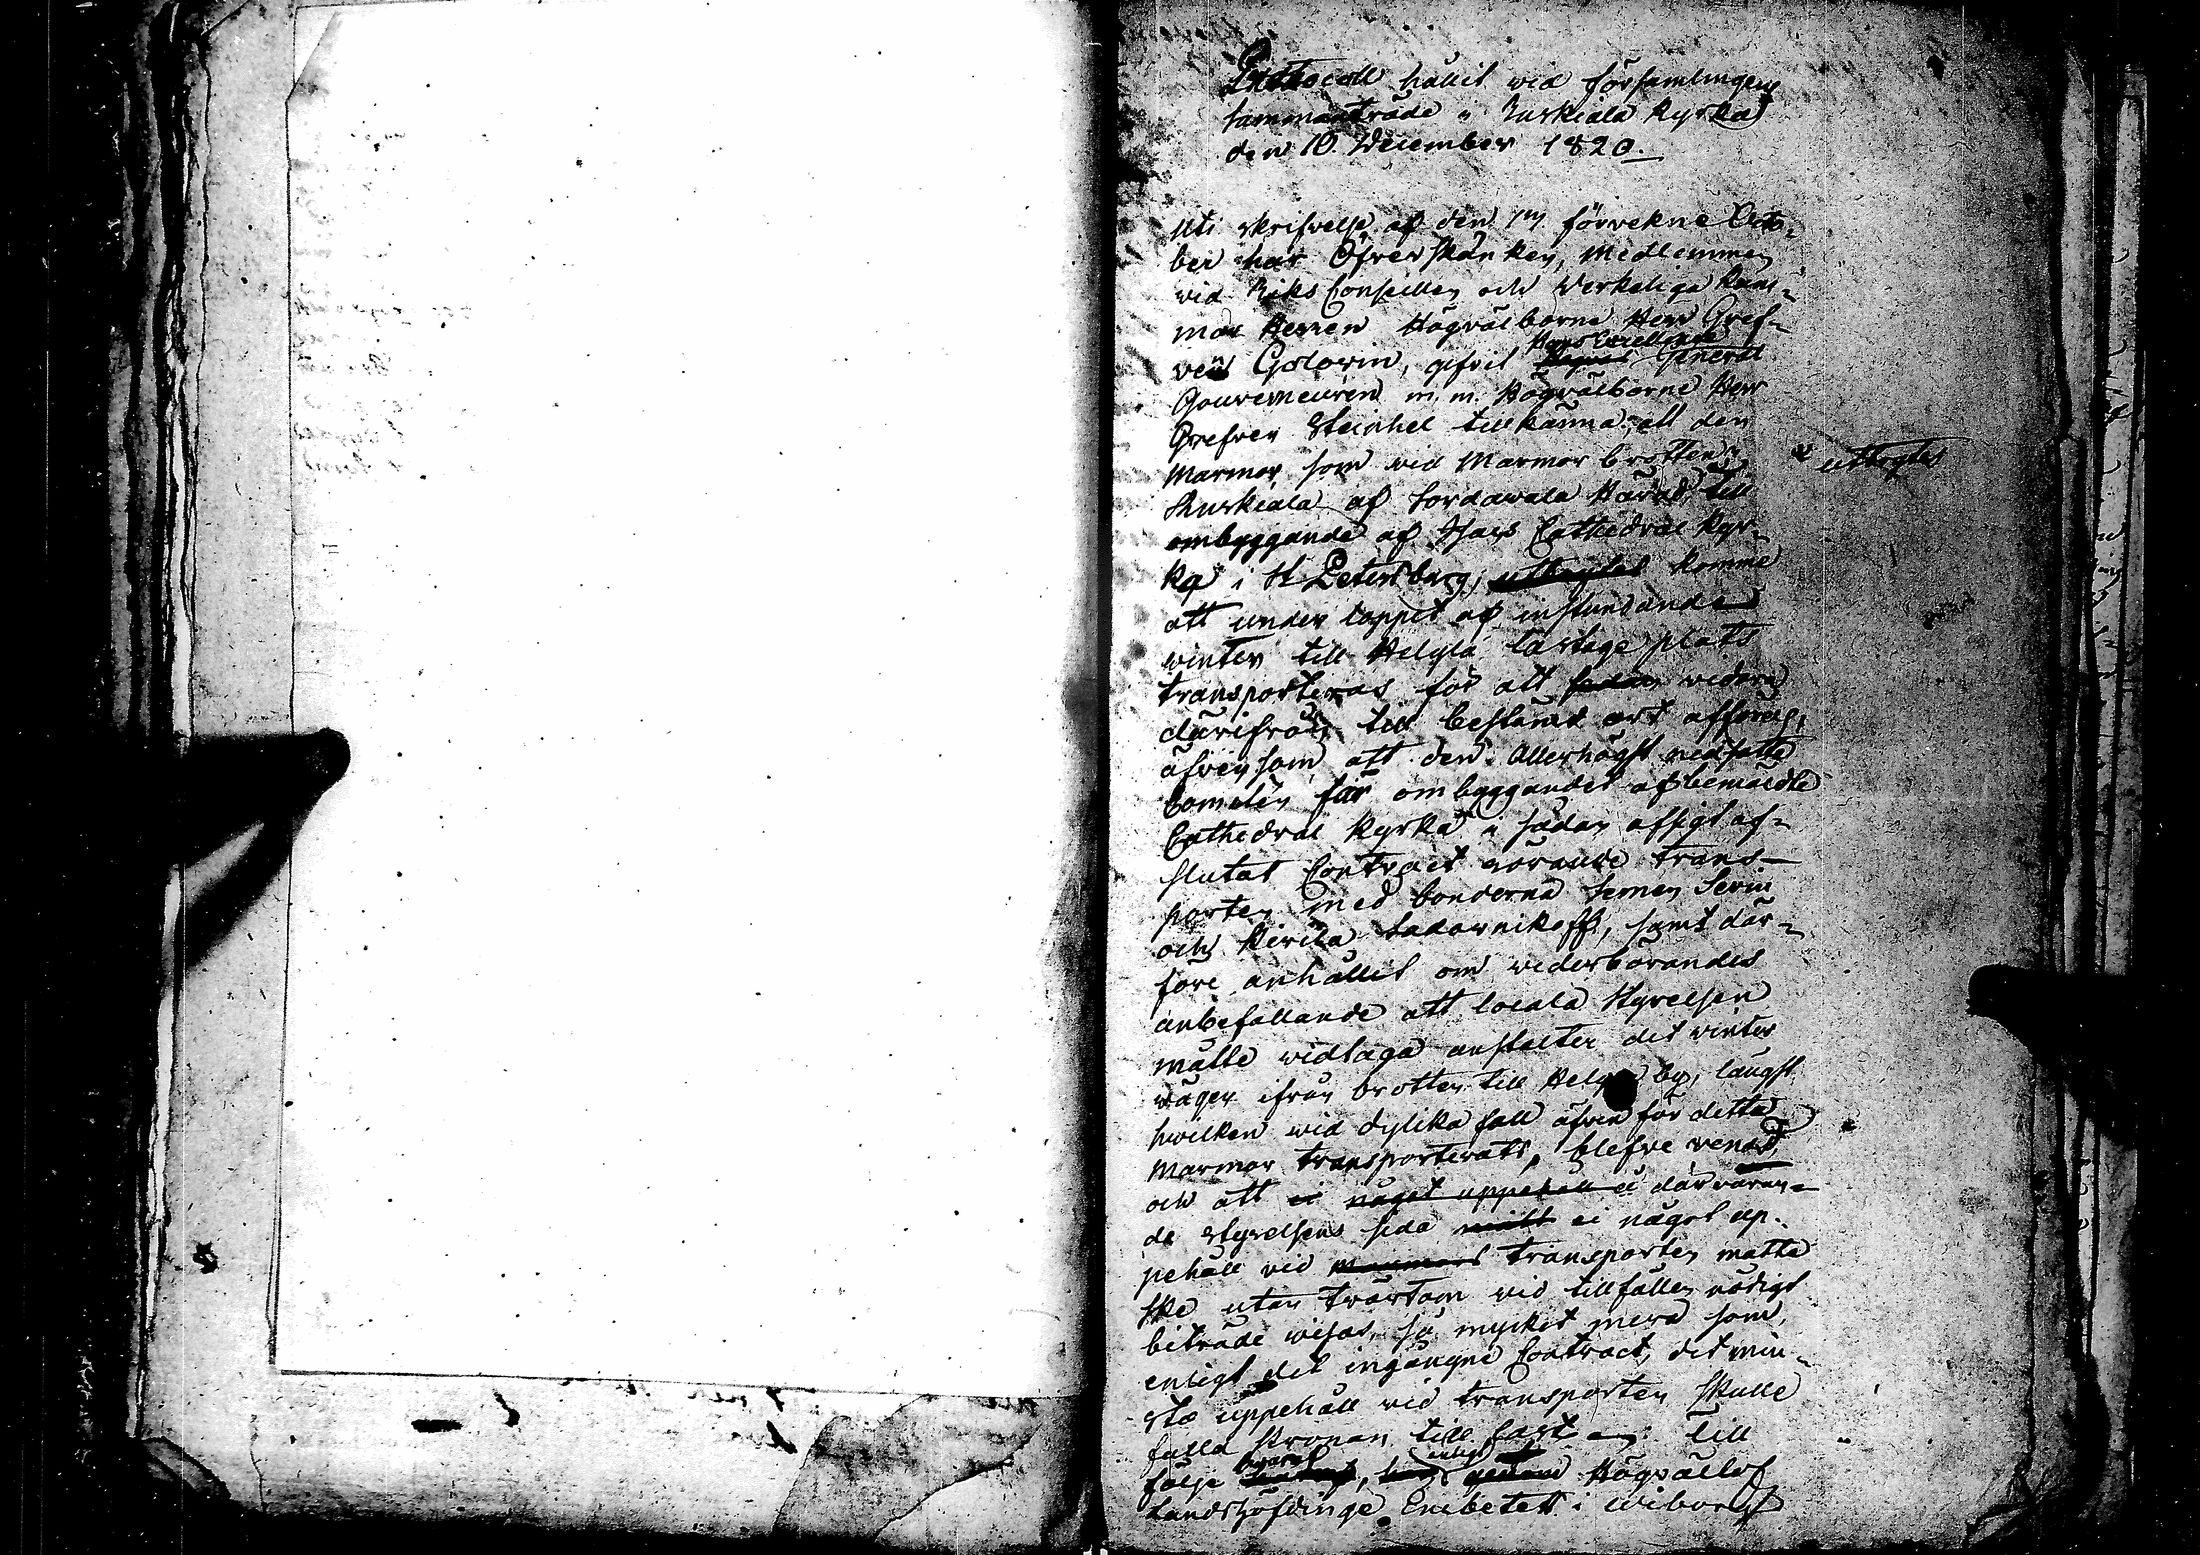 Protocoll hållit wid församlingens
sammanträde i Ruskiala Kyrka
den 10. December 1820.
Uti skrifvelse af den förvekne Octo-
ber har Öfverskänken, Medlemmen
vid Riks Conseillen och Verkeliga Kam-
mar Herren Högvälborne Herr Gref-
ven Golovin, gifvit Hans Excellence General
Gouverneuren m. m. Högvälborne Herr
Grefven Steinheil tillkänna, att den
Marmor, som vid Marmor brotten i
utbrytes
Ruskiala af Sordawala Härad, till
ombyggande af Isacs Cathedral Kyr-
ka i St Petersburg, utbrytes komme
att under loppet af instundande
winter till Helylä lastage plats
transporteras för att sedan vidare
därifrån till bestämd ort afföras,
äfvensom att den Allerhögst nedsatte
Comitén för ombyggandet af bemälde
Cathedral Kyrka i sådan afsigt af-
slutat Contract rörande trans-
porten med bönderna Semen Serin
och Kirila Sadownikoff, samt där-
före anhållit om wederbörandes
anbefallande att locala Styrelsen
måtte widtaga anstalter det winter
vägen ifrån brotten till Helylä by, längst
hvilken wid dylika fall äfven för detta
Marmor transporterats, blefve renad,
och att ei något uppehåll å därvaran-
de styrelsens sida ei något up-
pehåll vid transporten måtte
ske utan tvärtom vid tillfällen nödigt
biträde wisas, så mycket mera som,
enligt det ingångne Contract, det min-
sta uppehåll vid transporten skulle
falla Kronan till last. Till
följe häraf, Högvällof
Landshöfdinge Embetet i Wiborgs